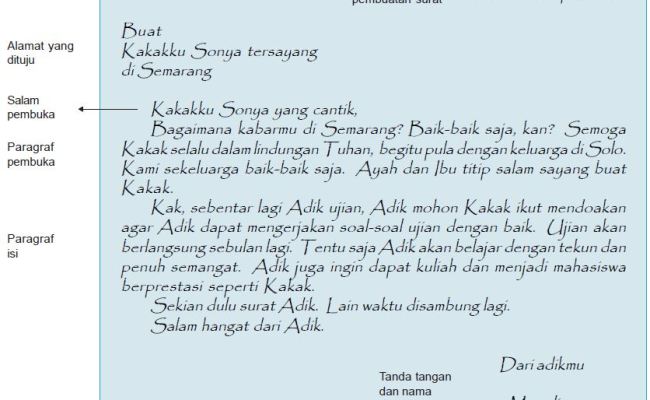 pembuatan surat
Buat
Alamat yang
dituju
Kakakku Sonya tersayang
di Semarang
Salam
pembuka
Kakakku Sonya yang cantik,
Bagaimana kabarmu di Semarang? Baik-baik saja, kan? Semoga
Paragraf
pembuka
Kakak selalu dalam lindungan Tuhan, begitu pula dengan keluarga di Solo.
Kami sekeluarga baik-baik saja. Ayah dan Ibu titip salam sayang buat
Kakak.
Kak, sebentar lagi Adik ujian, Adik mohon Kakak ikut mendoakan
agar Adik dapat mengerjakan soal-soal ujian dengan baik. Ujian akan
Paragraf
isi
berlangsung sebulan lagi. Tentu saja Adik akan belajar dengan tekun dan
penuh semangat. Adik juga ingin dapat kuliah dan menjadi mahasiswa
berprestasi seperti Kakak.
Sekian dulu surat Adik. Lain waktu disambung lagi.
Salam hangat dari Adik.
Dari adikmu
Tanda tangan
dan nama